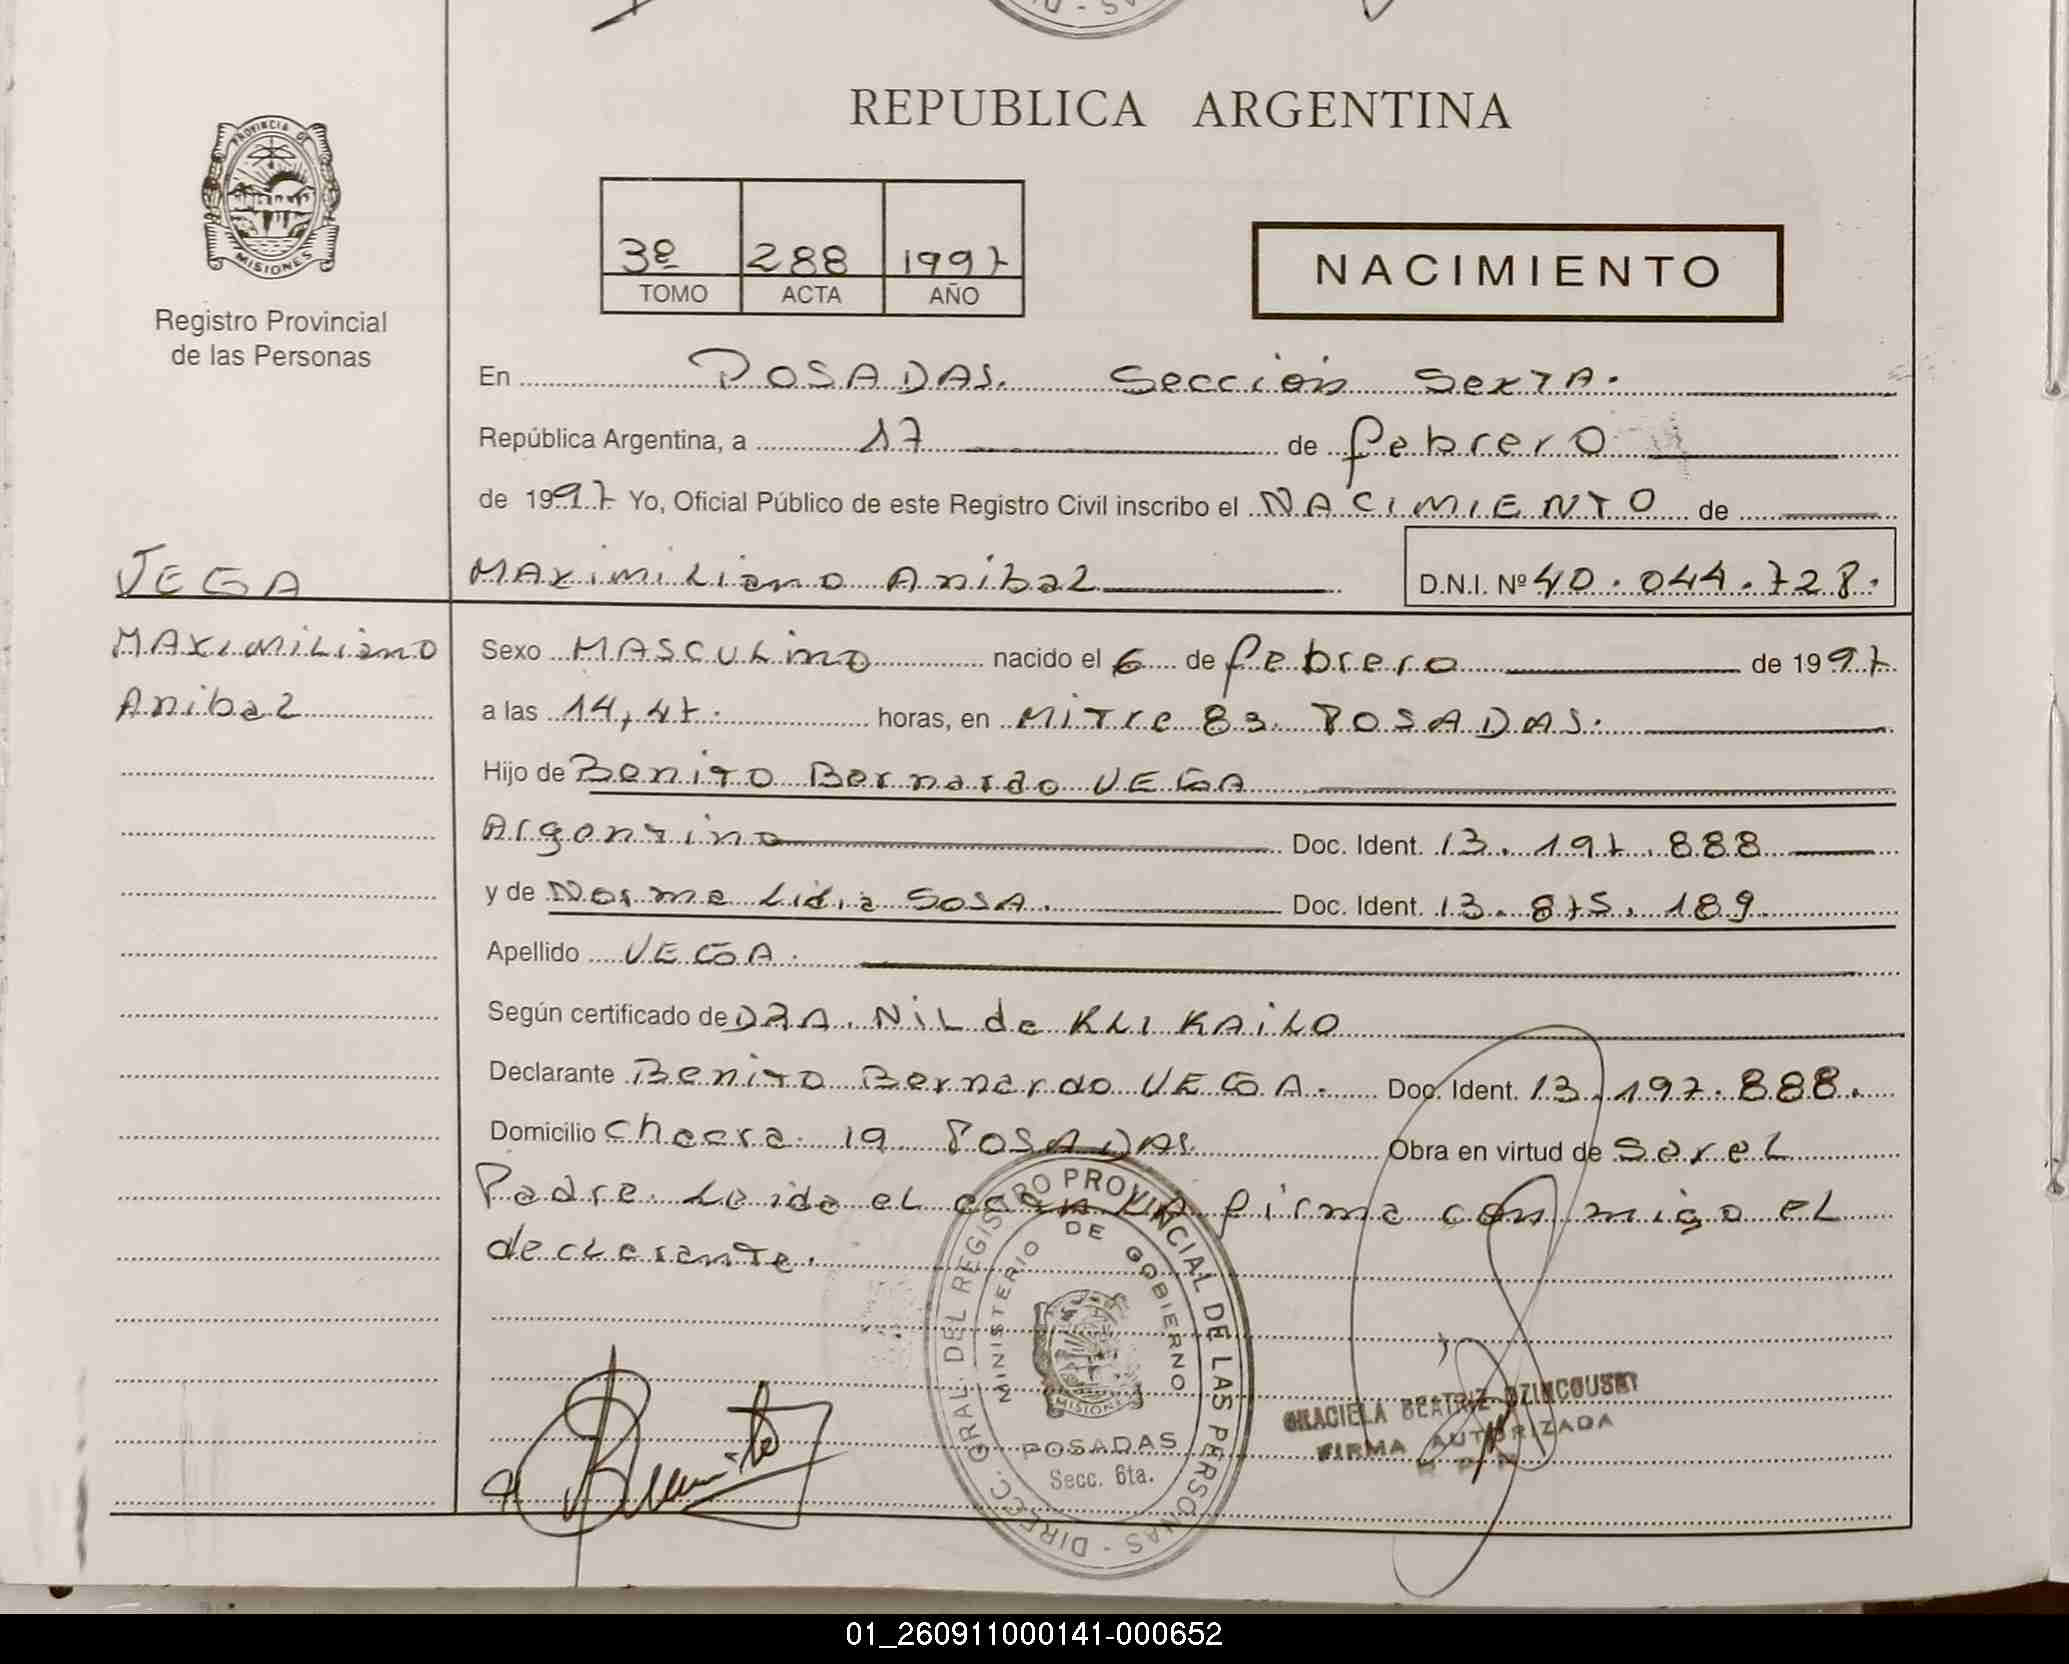 REPUBLICA ARGENTINA
PROVINCIA DE
MISIONES
Registro Provincial
de las Personas
3º 288 1997
TOMO ACTA AÑO
NACIMIENTO
En POSADAS. Sección Sexta.
República Argentina, a 17 de febrero
de 1997 Yo, Oficial Público de este Registro Civil inscribo el NACIMIENTO de
VEGA
Maximiliano Anibal D.N.I. Nº 40.044.728.
Maximiliano
Anibal
Sexo MASCULINO nacido el 6 de febrero de 1997
a las 14,47. horas, en Mitre 83. POSADAS.
Hijo de Benito Bernardo VEGA
Argentino Doc. Ident. 13.197.888
y de Norma Lidia SOSA. Doc. Ident. 13.875.189
Apellido VEGA.
Según certificado de DRA. Nilde KLIKAILO
Declarante Benito Bernardo VEGA. Doc. Ident. 13.197.888.
Domicilio Chacra 19 POSADAS Obra en virtud de ser el
Padre. Leida el firma con migo el
declarante.
DIRECC. GRAL. DEL REGISTRO PROVINCIAL DE LAS PERSONAS
MINISTERIO DE GOBIERNO
MISIONES
POSADAS
Secc. 6ta.
Benito
GRACIELA BEATRIZ
FIRMA AUTORIZADA
01_260911000141-000652